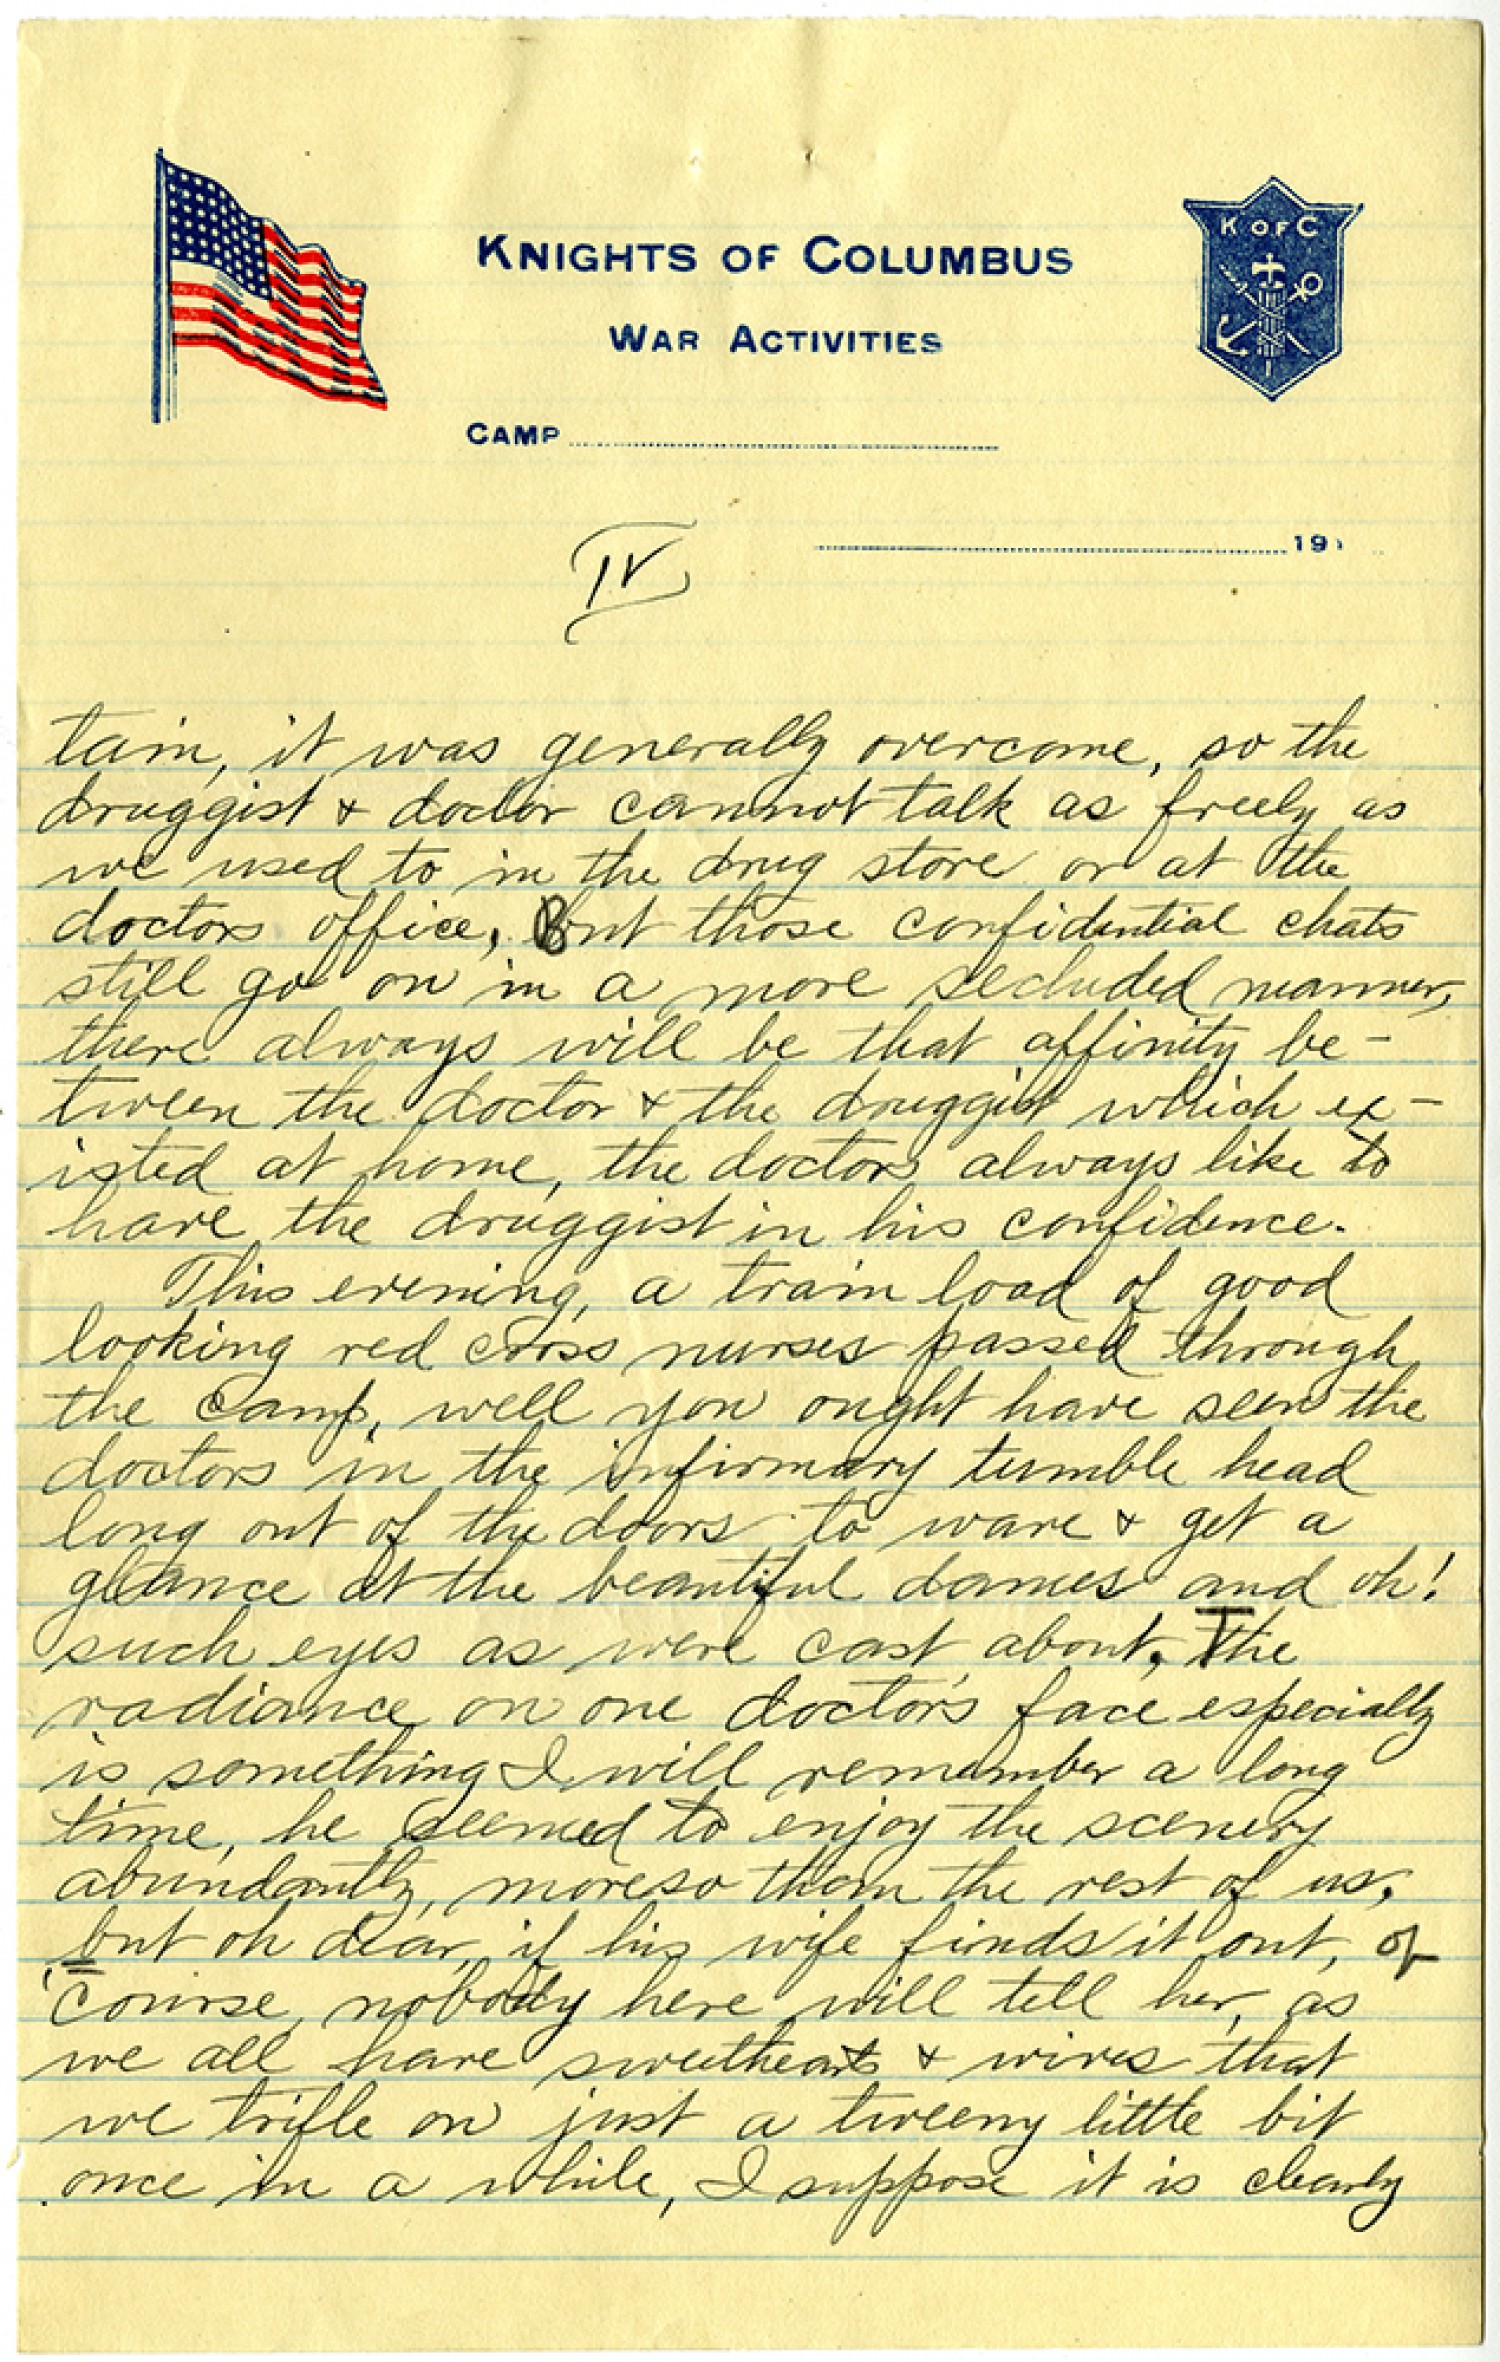 K of C
KNIGHTS OF COLUMBUS
WAR ACTIVITIES
CAMP
191
IV
tain, it was generally overcome, so the
druggist & doctor cannot talk as freely as
we used to in the drug store or at the
doctors office, But those confidential chats
still go on in a more secluded manner,
there always will be that affinity be-
tween the doctor & the druggist which ex-
isted at home, the doctors always like to
have the druggist in his confidence.
This evening, a train load of good
looking red cross nurses passed through
the camp, well you ought have seen the
doctors in the infirmary tumble head
long out of the doors to wave & get a
glance at the beautiful dames and oh!
such eyes as were cast about, The
radiance on one doctor's face especially
is something I will remember a long
time, he seemed to enjoy the scenery
abundantly, moreso than the rest of us,
but oh dear, if his wife finds it out, of
course, nobody here will tell her, as
we all have sweethearts & wives that
we trifle on just a tweeny little bit
once in a while, I suppose it is clearly